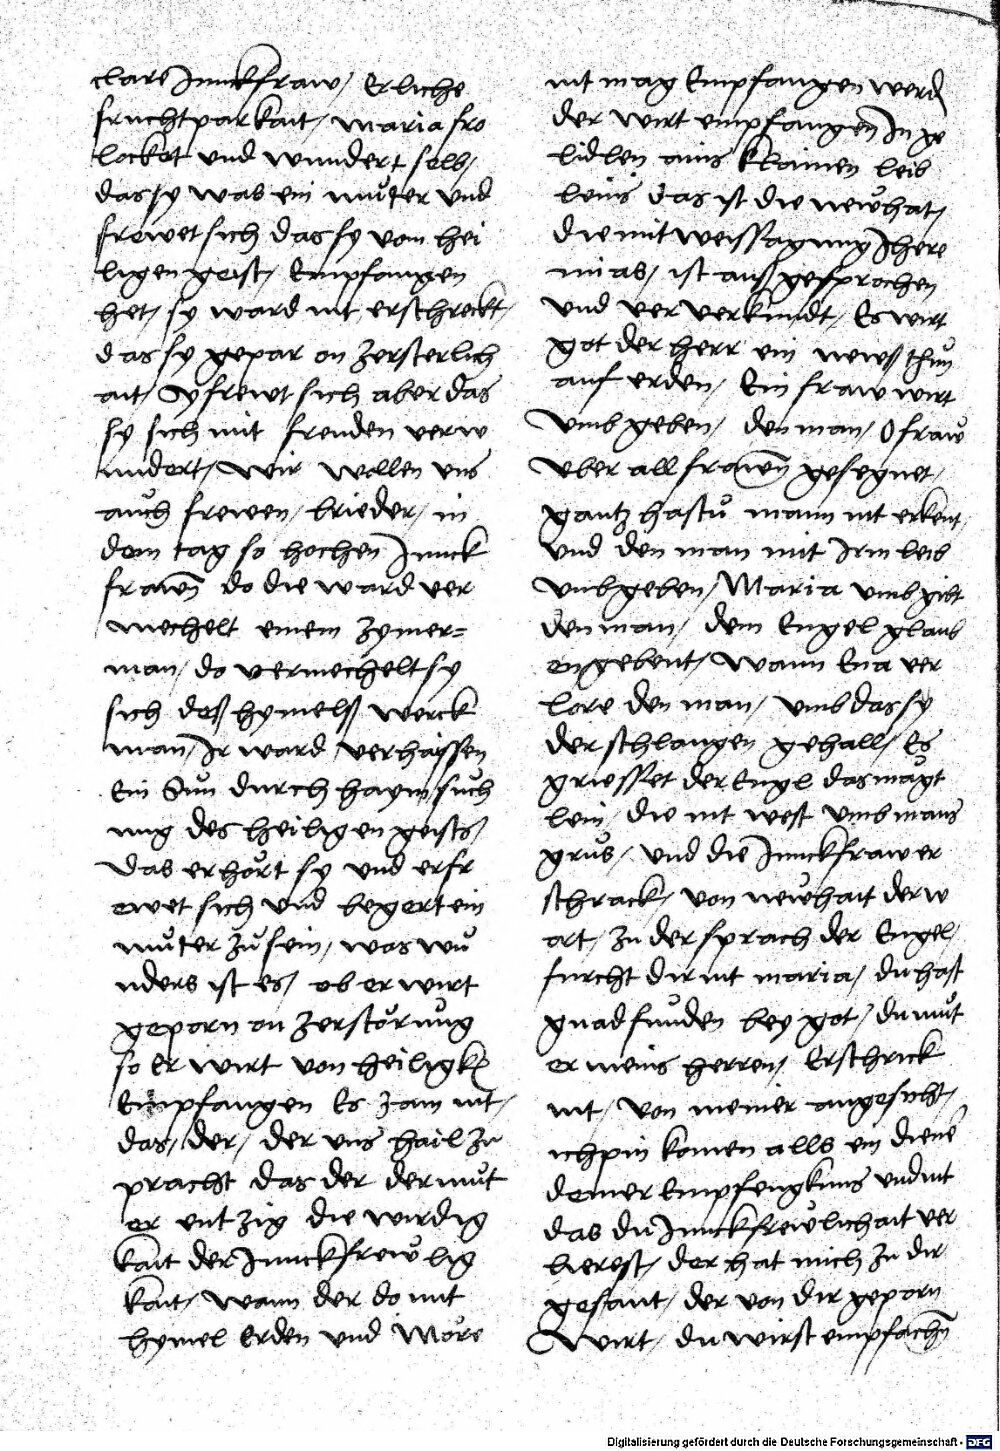 clare Junckfraw / Erliche
fruchtparkait / maria fro
locket vnd wundert selb /
das sy was ein můter vnd
frewet sich das sy vom hei
ligen geist / Empfangen
het / sy ward nit erschreckt /
das sy gepar on zersterlich
ait / Sy frewt sich aber das
sy sich mit freuden verw
undert / Wir wollen vns
auch frewen / brieder / in
dem tag so hochen Junck
frawn̄ do die ward ver
mechelt einem zymer=
man / do vermechelt sy
sich deß hymelß werck
man / Ir ward verhaissen
Ein Sun durch haym such
ung des heiligen geists /
Das erhört sy vnd erfr
ewet sich vnd begert ein
můter zů sein / was wu
nders ist es / ob er wirt
geporn on zerstörung
so Er wirt von heiligk
Empfangen Es zam nit /
das / der / der vns hail zu
pracht das der der můt
er ent zig die wirdig
kait der Junckfrewlig
kait / Wann der do mit
hymel Erden vnd More
nit mag Empfangen werd
der wirt empfangen In ge
lidlen ains klainen leib
leins das ist die newhat /
die mit weissagung Jhere
mias / ist auß gesprochen
vnd ver verkundt / Es wirt
got der herr ein newß thun
auf erden / Ein fraw wirt
vmb geben / den man / O fraw
vber all frawn̄ gesegnet /
gantz hastu mann nit erkent /
vnd den man mit Irm leib
vmbgeben / Maria vmb gibt
den man / dem Engel glaub
en gebent / Wann Eua ver
lore den man / vmb das sy
der schlangen gehall / Es
griesset der Engl das magt
lein / die nit west vmb mans
grus / vnd die Junckfraw er
schrack / von newhait der w
ort / zu der sprach der Engel /
furcht dir nit maria / du hast
gnad funden bey got / du můt
er meins herren / Erschrick
nit / von meiner angesicht /
ich pin komen alls ein diener
deiner Empfengknus vnd nit
das du Junckfrewlichait ver
lierest / der hat mich zu dir
gesant / der von dir geporn
Wirt / du wirst empfachn̄
Digitalisierung gefördert durch die Deutsche Forschungsgemeinschaft - DFG